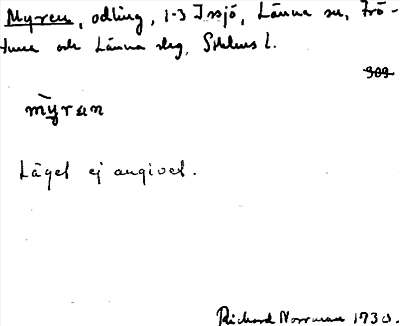 Myren, odling, 1-3 Issjö, Länna sn, Frö-
tuna och Länna slg, Sthlms l.
909
mỳran
Läget ej angivet.
Richard Norrman 1930.